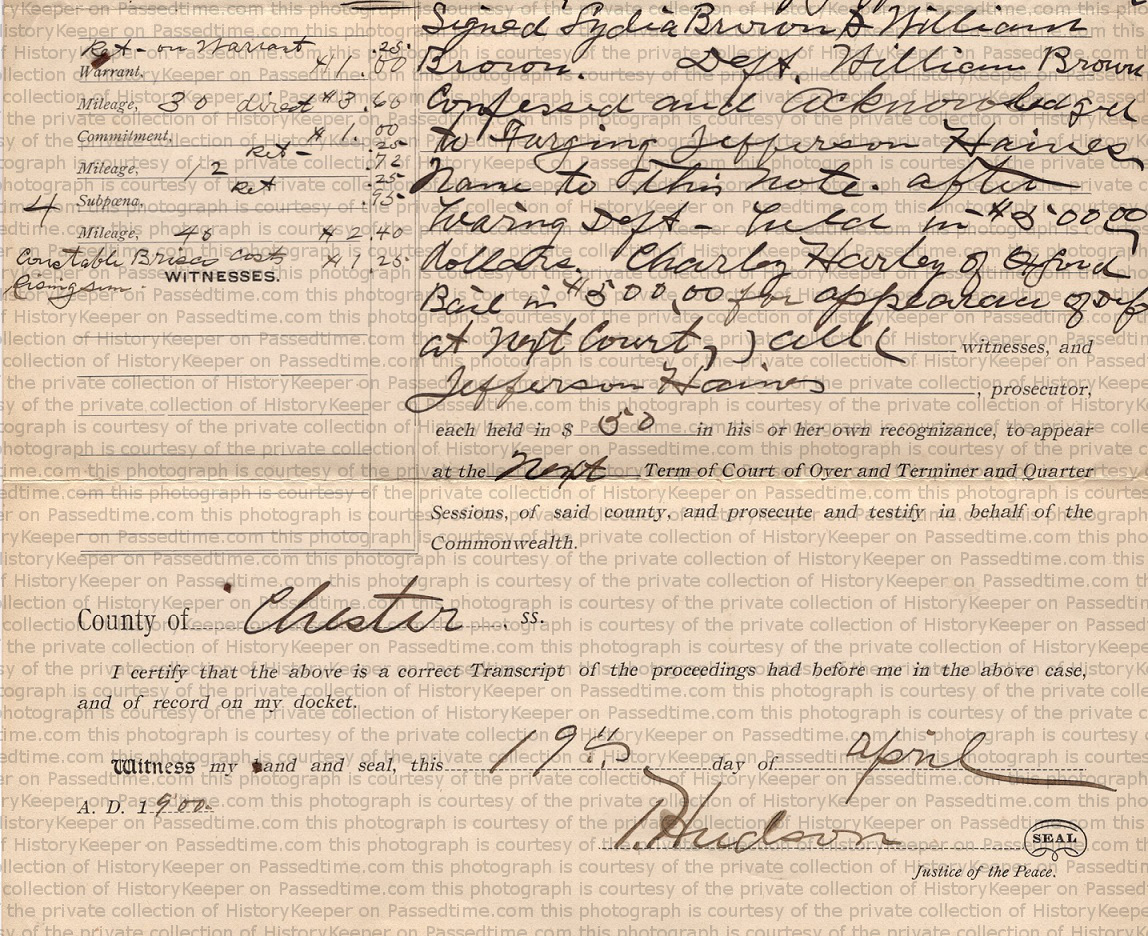 Ret - on Warrant .25
Warrant, $1.00
Mileage, 30 direct $3.60
Commitment, $1.00
Ret - .25
Mileage, 12 .72
Ret .25
4 Subpœna, .75
Mileage, 48 $2.40
Constable Brisco Costs $1.25
Rising sun.
WITNESSES.
Signed Lydia Brown & William
Brown. Deft. William Brown
Confessed and Acknowledged
to Forging Jefferson Haines
Name to this note. after
hearing Deft - held in $500.00
dollars. Charley Harley of Oxford
Bail in $500.00 for appearance of Deft
at Next Court, ) all ( witnesses, and
Jefferson Haines, prosecutor,
each held in $ 50 in his or her own recognizance, to appear
at the Next Term of Court of Oyer and Terminer and Quarter
Sessions, of said county, and prosecute and testify in behalf of the
Commonwealth.
County of Chester, ss.
I certify that the above is a correct Transcript of the proceedings had before me in the above case,
and of record on my docket.
Witness my hand and seal, this 19th day of april
A. D. 1900
T. Hudson SEAL
Justice of the Peace.
this photograph is courtesy of the private collection of HistoryKeeper on Passedtime.com